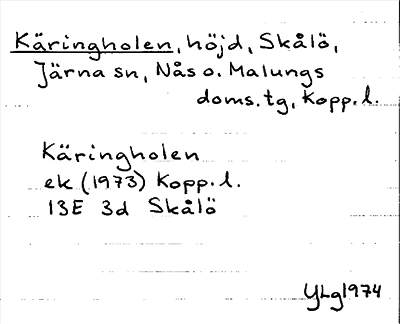 Käringholen, höjd, Skålö,
Järna sn, Nås o. Malungs
doms. tg, Kopp. l.
Käringholen
ek (1973) Kopp. l.
13E 3d Skålö
YLg 1974